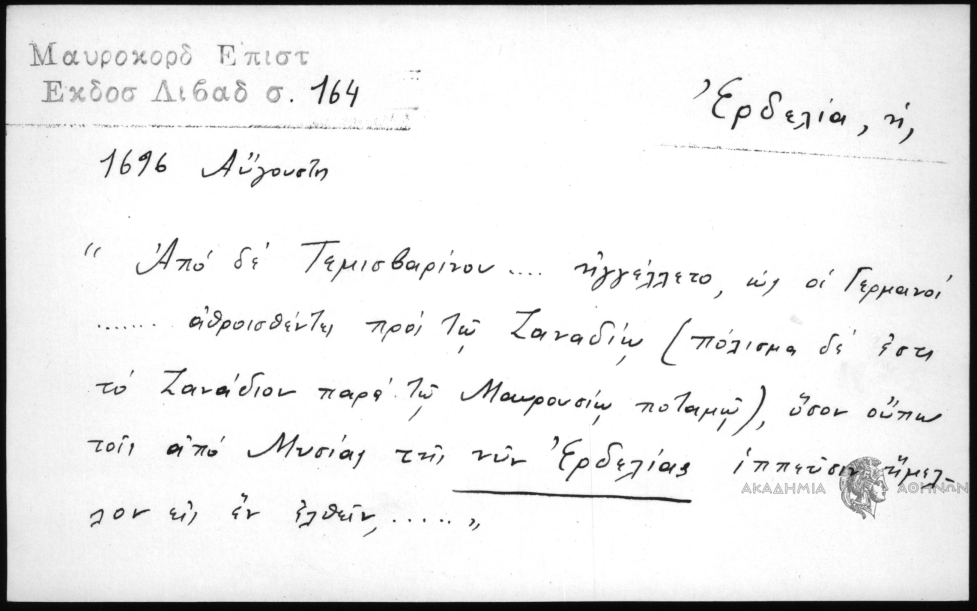 Μαυροκορδ Επιστ
Εκδοσ Λιβαδ σ. 164
Ἐρδελία, ἡ,
1696 Αὔγουστῃ
“ Ἀπό δέ Τεμισβαρίνου .... ἠγγέλλετο, ὡς οἱ Γερμανοί
....... ἀθροισθέντες πρός τῷ Ζαναδίῳ (πόλισμα δέ ἐστι
τό Ζανάδιον παρά τῷ Μαυρουσίῳ ποταμῷ), ὅσον οὔπω
τοῖς ἀπό Μυσίας τῆς νῦν Ἐρδελίας ἱππεῦσιν ἤμελ-
λον εἰς ἕν ἐλθεῖν, ..... „
ΑΚΑΔΗΜΙΑ ΑΘΗΝΩΝ